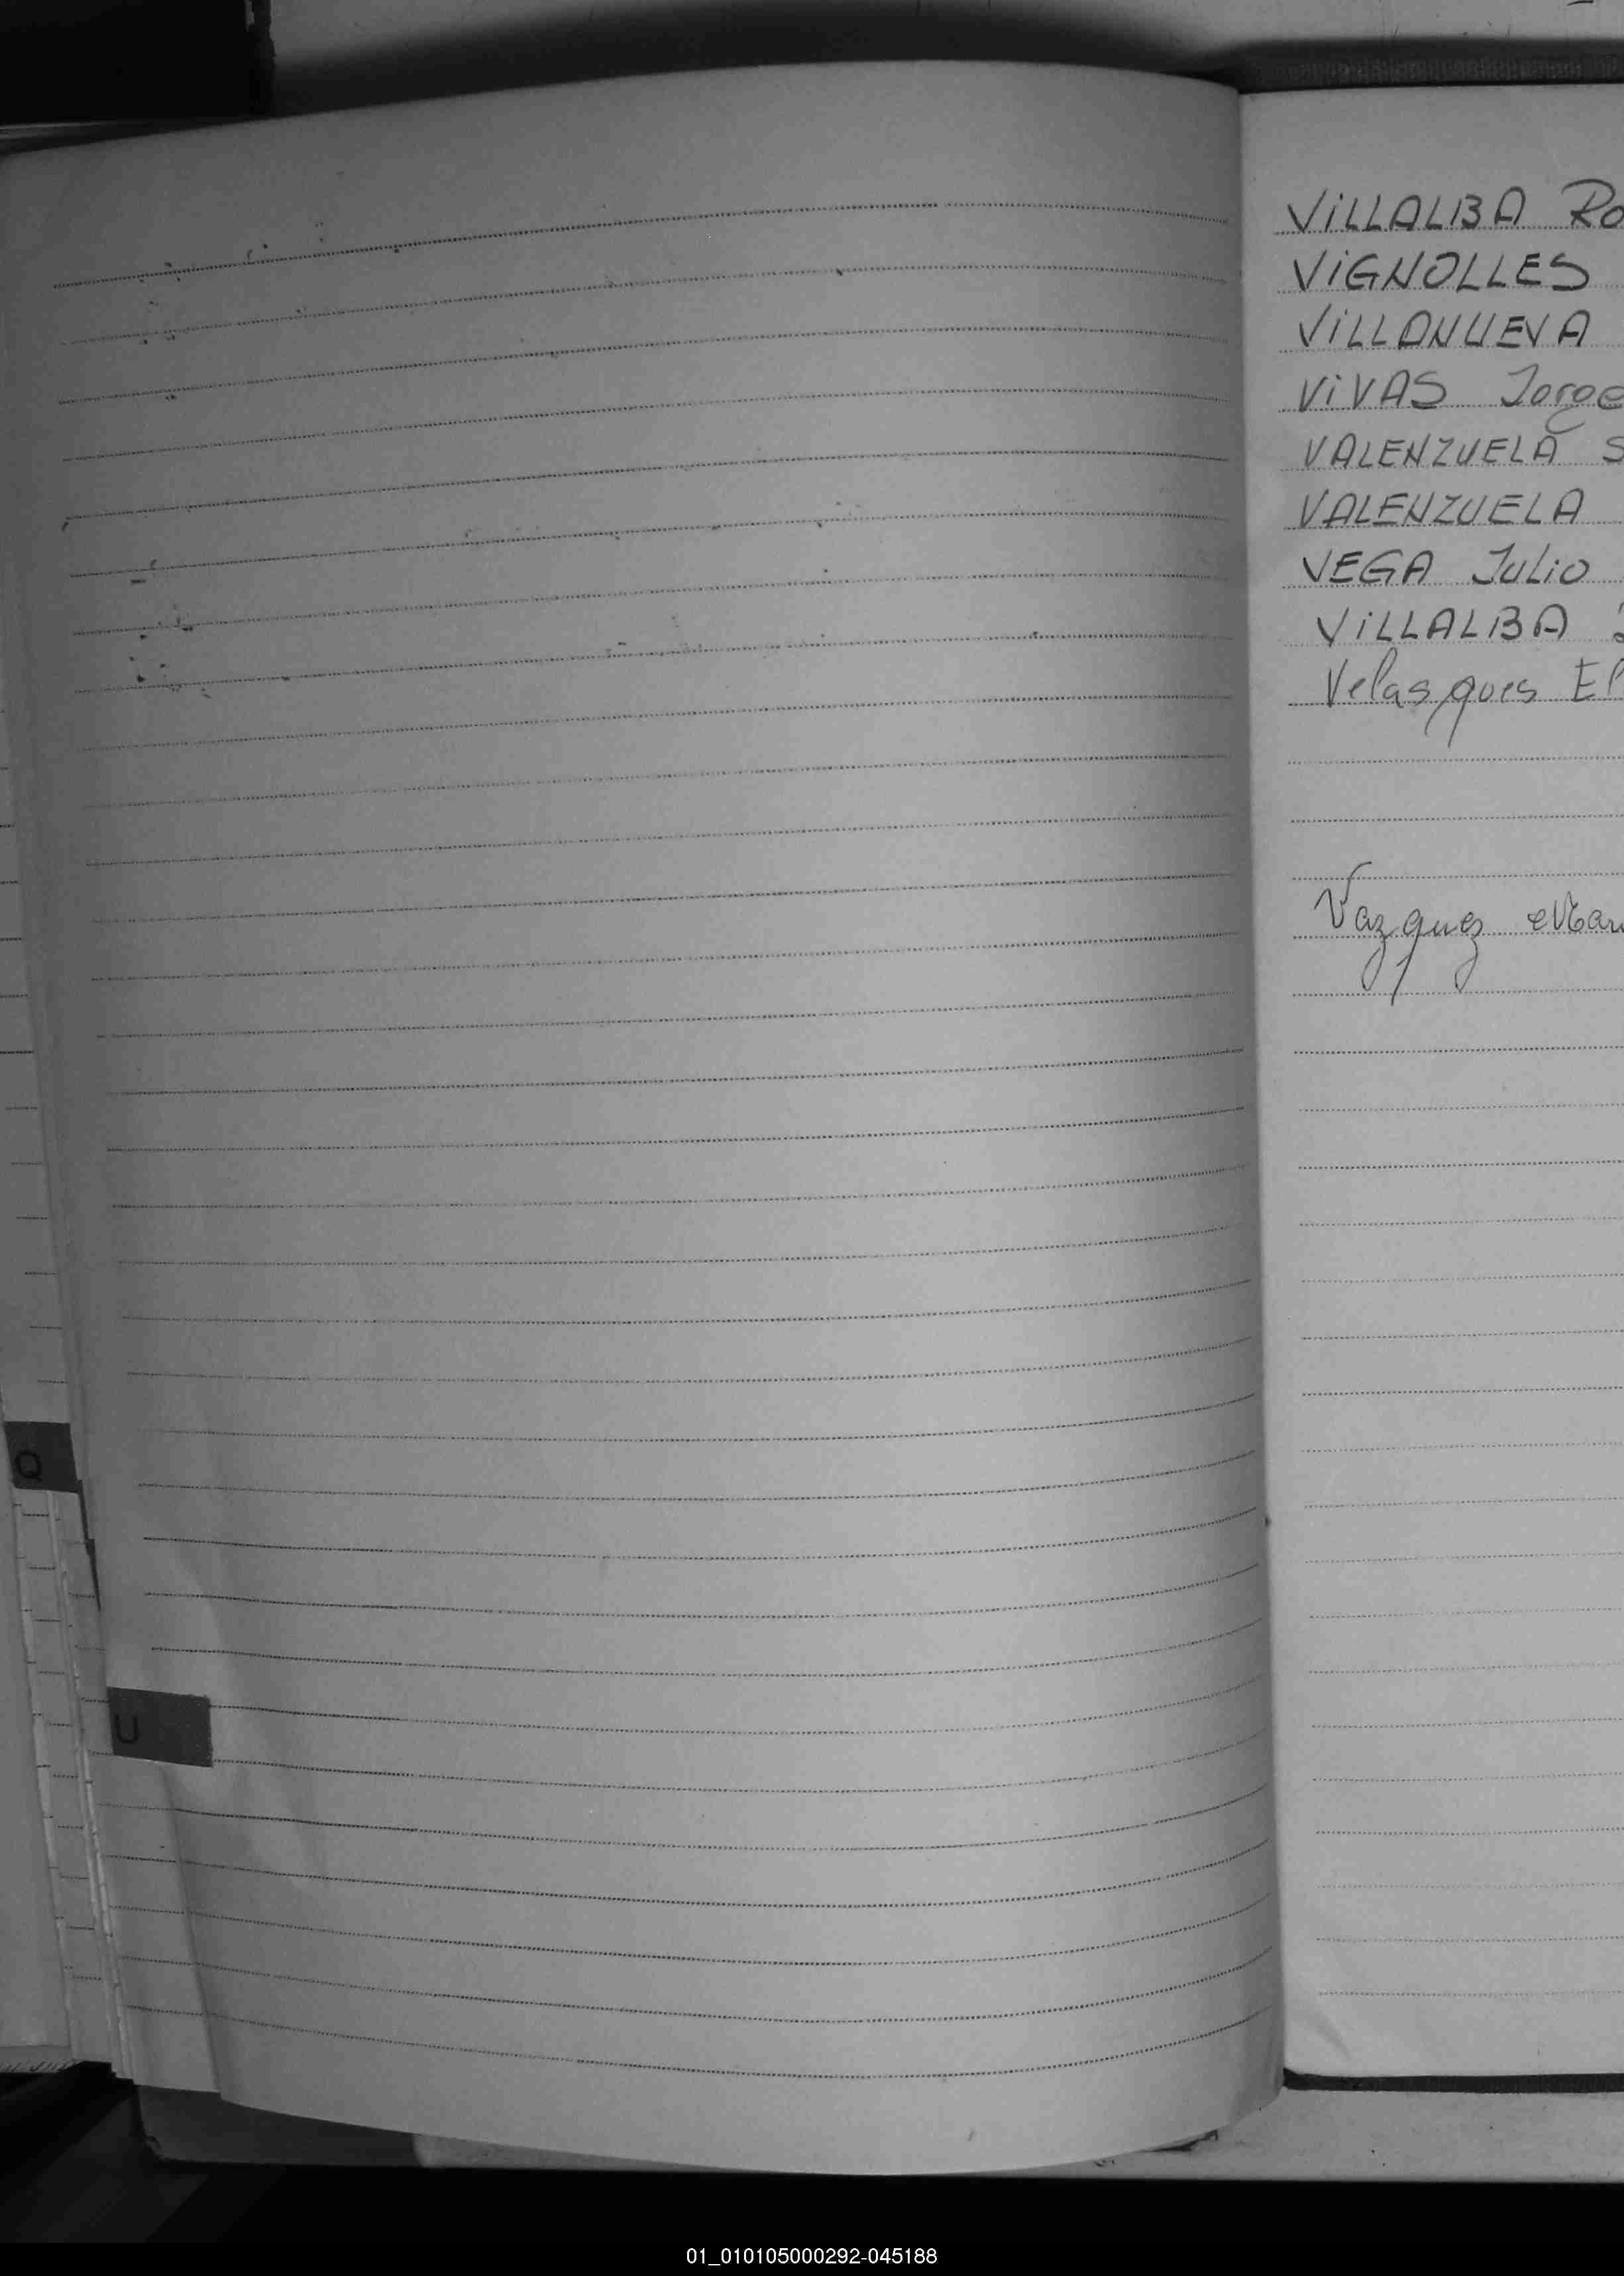 VILLALBA Ro
VIGNOLLES
VILLANUEVA
VIVAS Jorge
VALENZUELA S
VALENZUELA
VEGA JULIO
VILLALBA
Velasques El
Vazquez Mar
Q
U
01_010105000292-045188